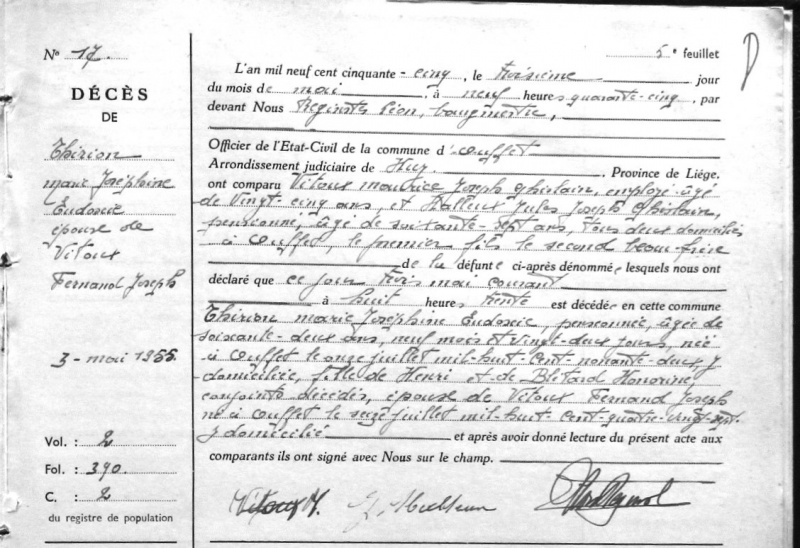 Nº 17.
DÉCÈS
DE
Thirion
Marie Joséphine
Eudoxie
épouse de
Vitoux
Fernand Joseph
3 - mai 1955
Vol. : 2
Fol. : 390
C. : 2
du registre de population
5e feuillet
L'an mil neuf cent cinquante - cinq, le troisième jour
du mois de mai, à neuf heures quarante-cinq, par
devant Nous Léon, bourgmestre,
Officier de l'Etat-Civil de la commune d'Ouffet
Arrondissement judiciaire de Huy, Province de Liége,
ont comparu Vitoux Maurice Joseph Ghislain, employé âgé
de vingt-cinq ans, et Halleux Jules Joseph Ghislain,
pensionné, âgé de soixante-sept ans, tous deux domiciliés
à Ouffet, le premier fils le second beau-frère
de la défunte ci-après dénommée lesquels nous ont
déclaré que ce jour trois mai courant
à huit heures trente est décédée en cette commune
Thirion Marie Joséphine Eudoxie, pensionnée, âgée de
soixante-deux ans, neuf mois et vingt-deux jours, née
à Ouffet le onze juillet mil-huit-cent-nonante-deux, y
domiciliée, fille de Henri et de Blétard Honorine
conjoints décédés, épouse de Vitoux Fernand Joseph
né à Ouffet le seize juillet mil-huit-cent-quatre-vingt-sept.
y domicilié et après avoir donné lecture du présent acte aux
comparants ils ont signé avec Nous sur le champ.
Vitoux M. J. Halleux